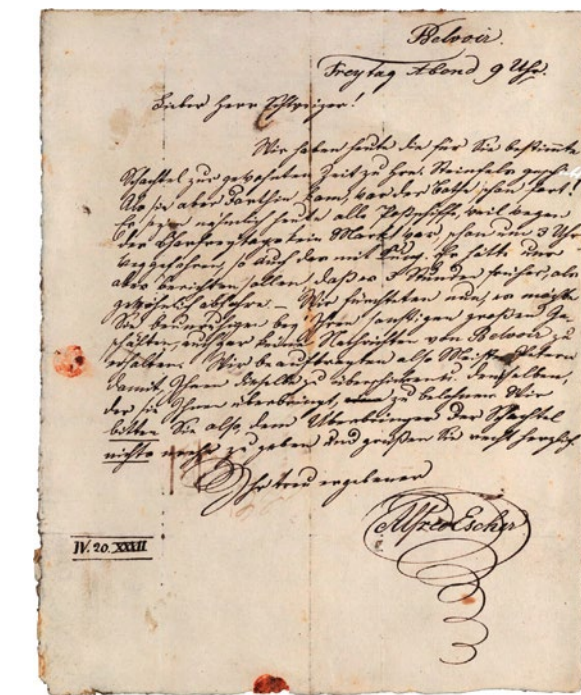 Belvoir.
Freytag Abend 9 Uhr.
Lieber Herr Schweizer!
Wir haben heute die für Sie bestimmte
Schachtel zur gewohnten Zeit zu Steinfels
Als sie aber dorthin kam, war der Bothe schon fort!
Es seyen nähmlich heute alle weil wegen
des Charfreytags kein Markt war, schon um 3 Uhr
weggefahren, so auch der mit Er hätte uns
aber berichten sollen, daß er Stunden früher, als
gewöhnlich abfahre. – Wir fürchteten nun, es möchte
Sie beunruhigen bey Ihren sonstigen großen Ge-
schäften, auch gar keine Nachrichten von Belvoir zu
erhalten. Wir beauftragten also
damit Ihnen dieselbe zu überschicken & denselben,
der sie Ihnen überbringt, zu belohnen. Wir
bitten Sie also, dem Überbringer der Schachtel
nichts mehr zu geben und grüßen Sie recht herzlich.
Ihr treu ergebener
Alfred Escher
IV. 20. XXXII